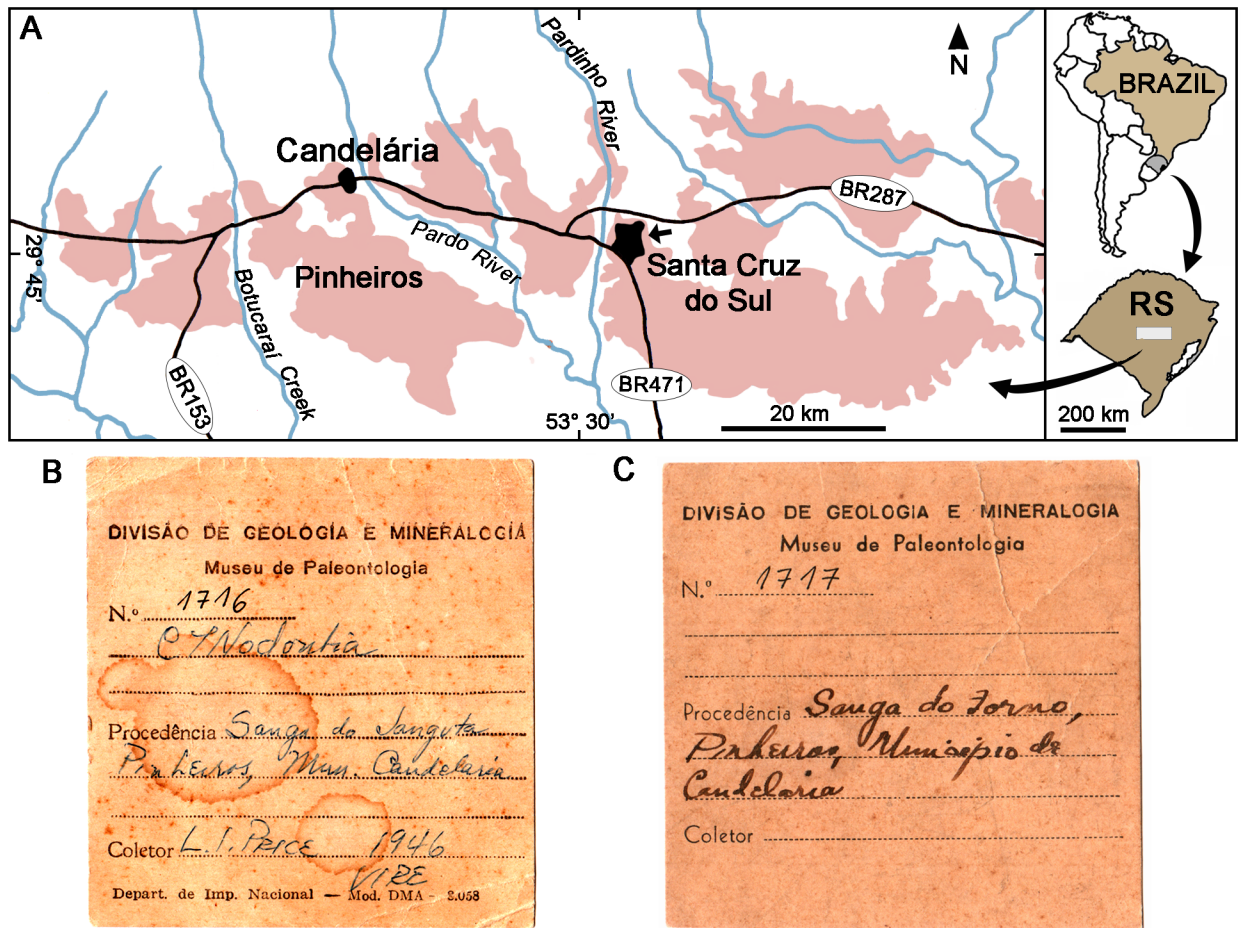 A
Pardinho River
N
BRAZIL
Candelária
BR287
Pardo River
29° 45'
Pinheiros
Santa Cruz
do Sul
RS
Botucaraí Creek
BR153
BR471
53° 30'
20 km
200 km
B
DIVISÃO DE GEOLOGIA E MINERALOGIA
Museu de Paleontologia
N.º 1716
CYNodontia
Procedência Sanga do Janguta
Pinheiros, Mun. Candelaria
Coletor L. I. PRICE 1946
VIRE
Depart. de Imp. Nacional — Mod. DMA - 2.058
C
DIVISÃO DE GEOLOGIA E MINERALOGIA
Museu de Paleontologia
N.º 1717
Procedência Sanga do Forno,
Pinheiros, Municipio de
Candelaria
Coletor